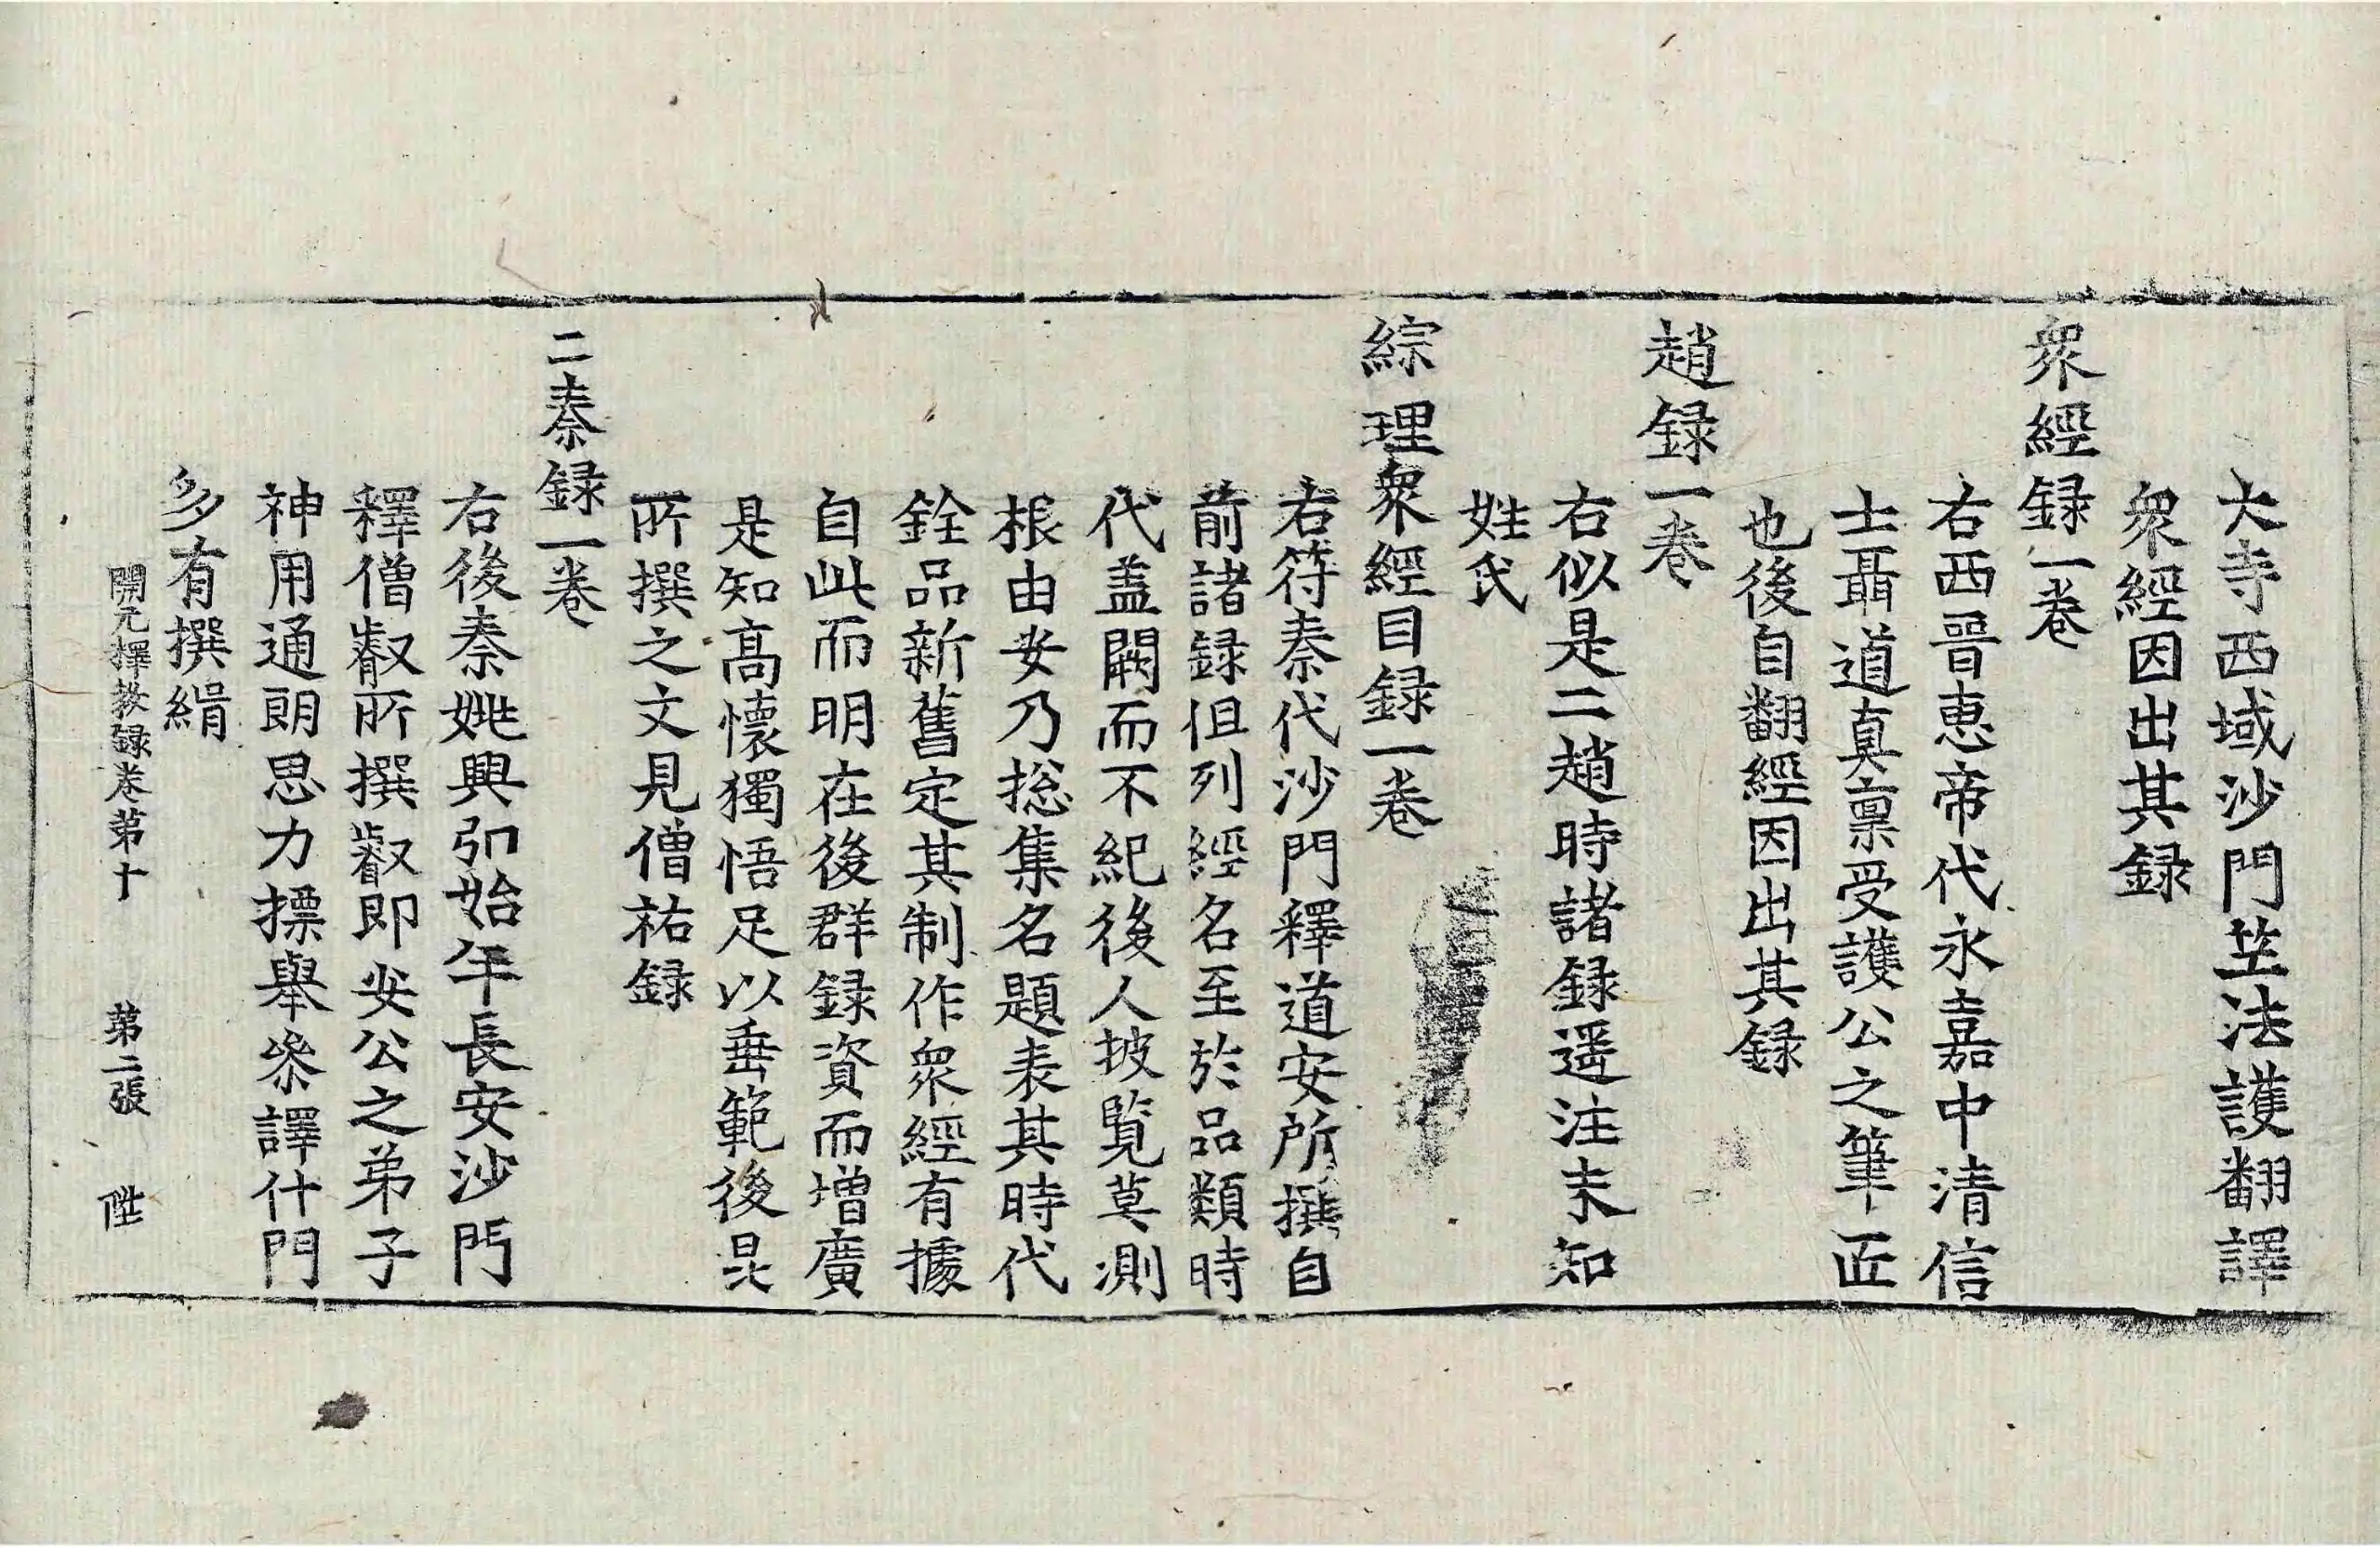 大寺西域沙門笁法護翻譯
衆經因出其録
衆經録一卷
右西晉恵帝代永嘉中清信
士聶道真禀受護公之筆匠
也後自翻經因出其録
趙録一卷
右似是二趙時諸録遥注未知
姓氏
綜理衆經目録一卷
右符秦代沙門釋道安所撰自
前諸録但列經名至於品類時
代盖闕而不紀後人披覧莫測
根由安乃揔集名題表其時代
銓品新舊定其制作衆經有據
自此而明在後群録資而增廣
是知髙懷獨悟足以垂範後昆
所撰之文見僧祐録
二秦録一卷
右後秦姚興弘始年長安沙門
釋僧叡所撰叡即安公之弟子
神用通朗思力摽舉叅譯什門
多有撰緝
開元釋教録卷第十 第二張 陞